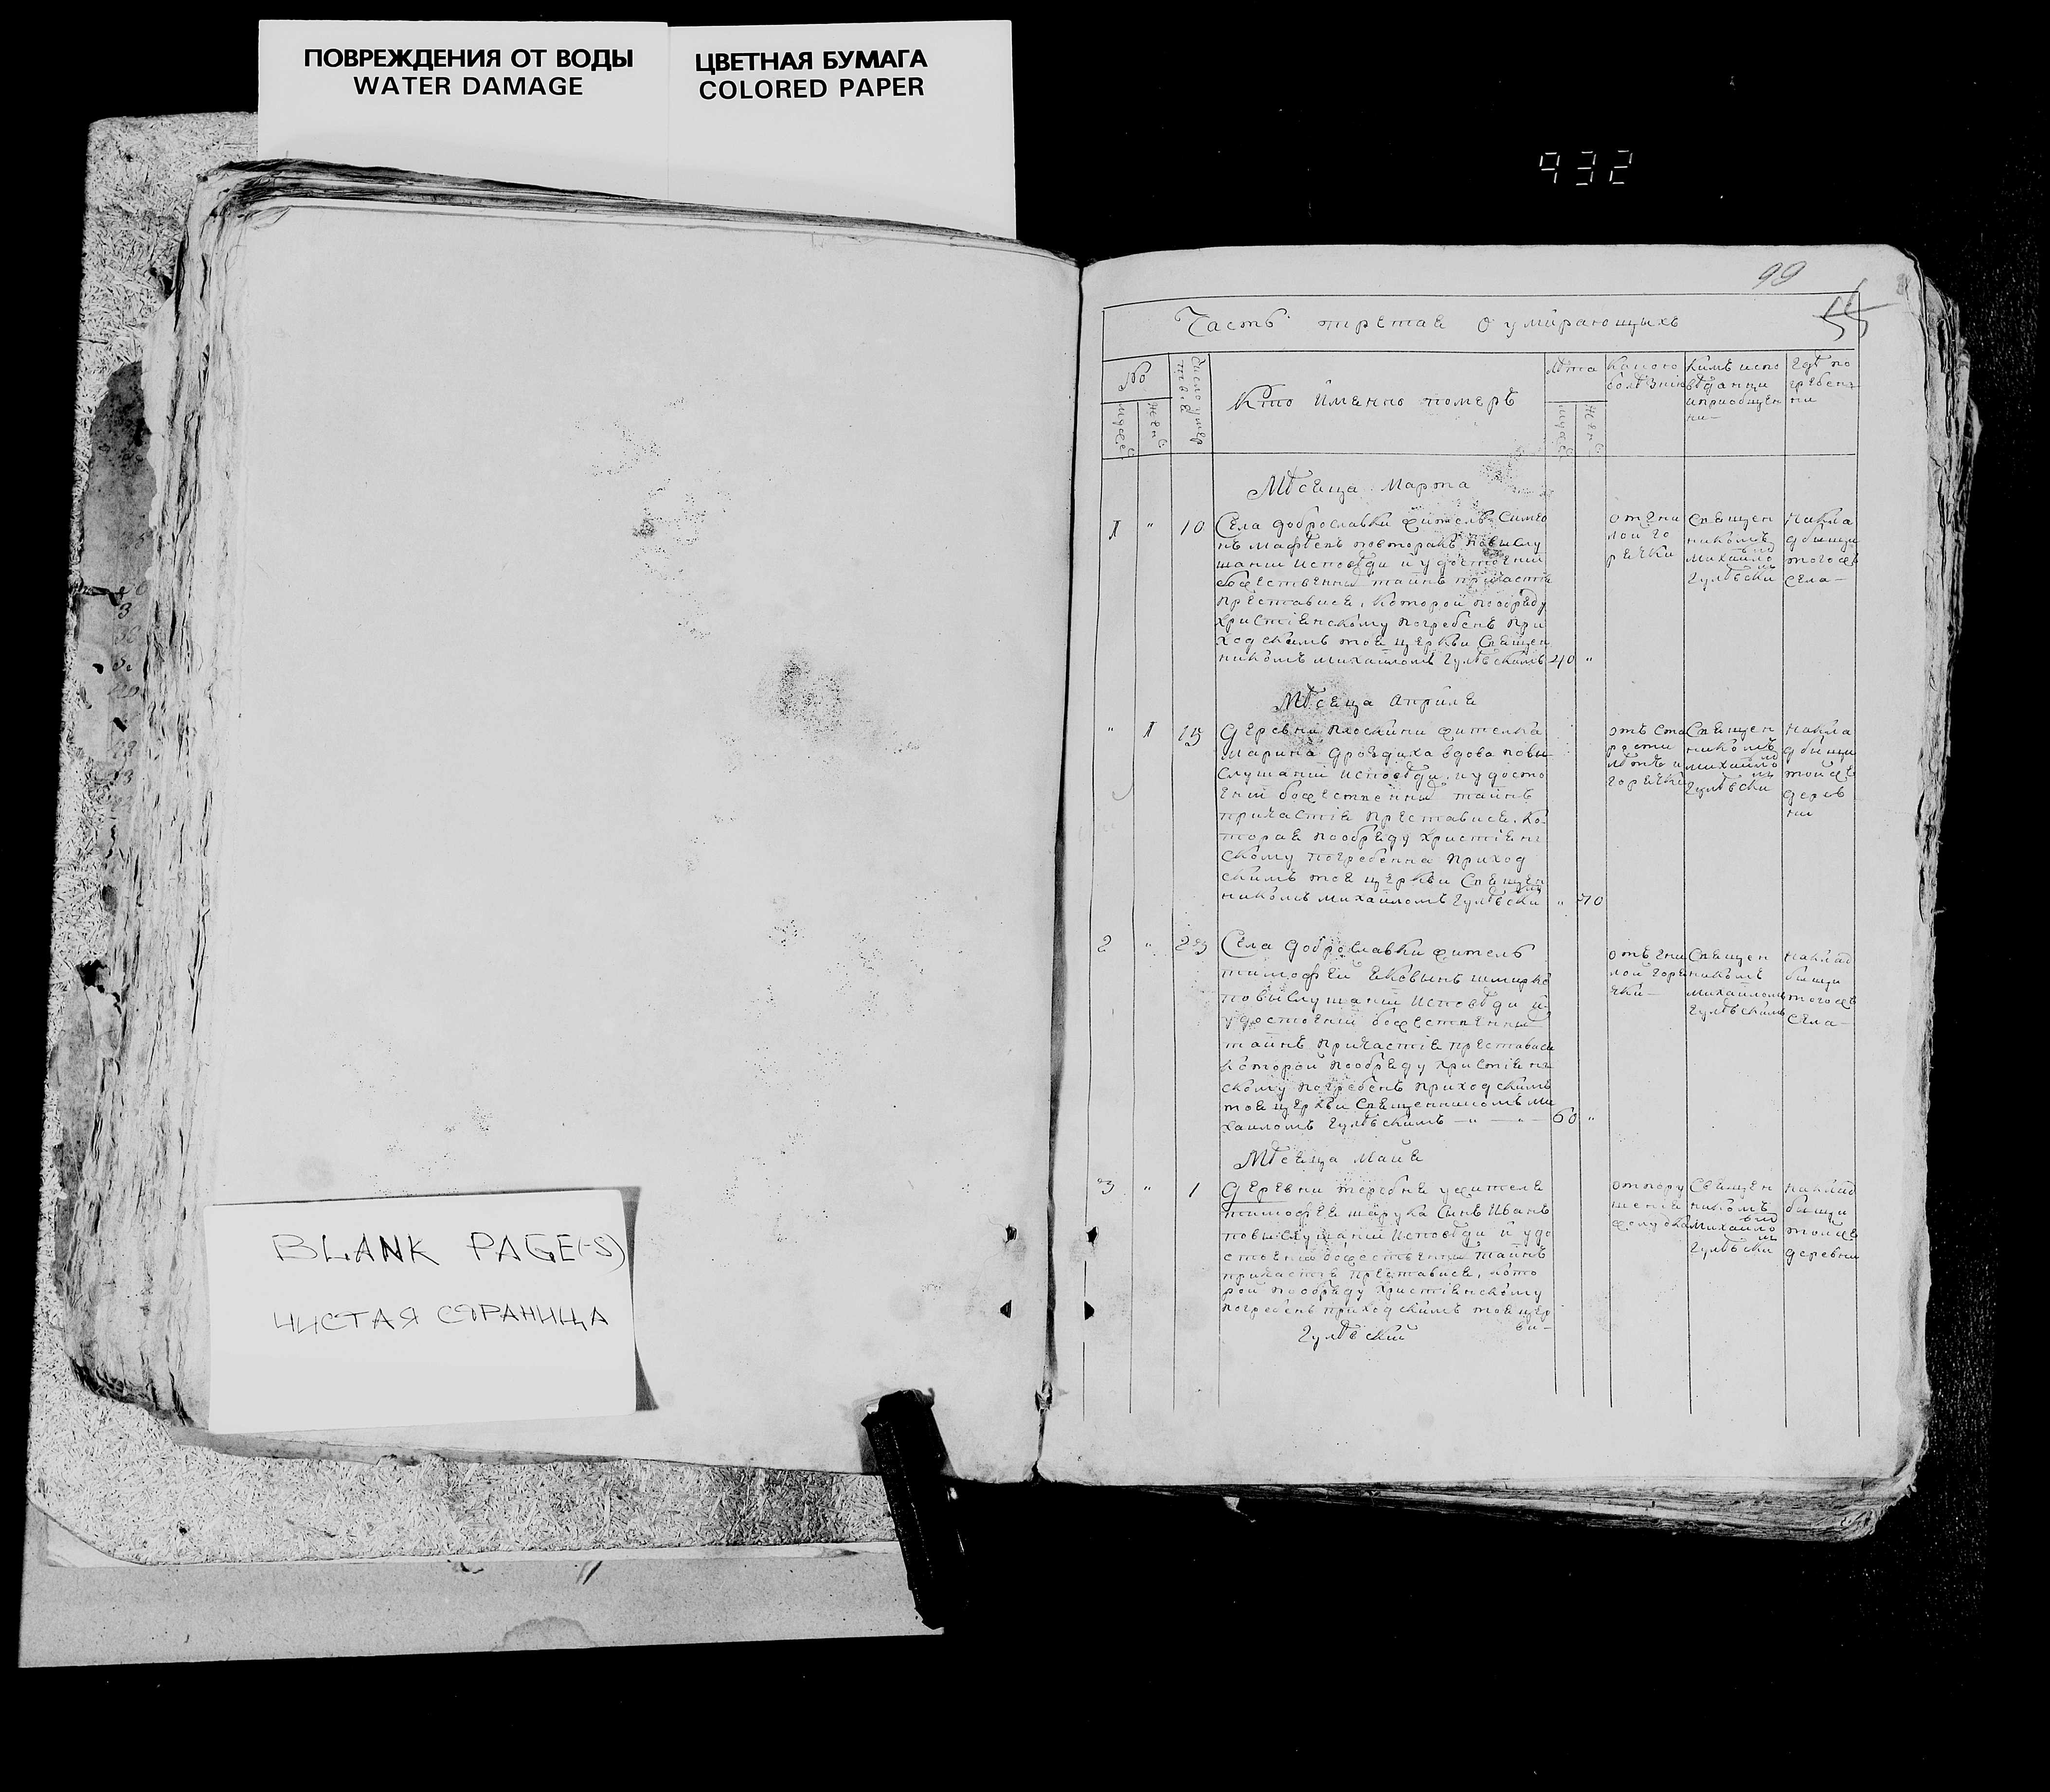 ПОВРЕЖДЕНИЯ ОТ ВОДЫ
WATER DAMAGE
ЦВЕТНАЯ БУМАГА
COLORED PAPER
932
99
55
Часть третая О умирающихъ
№
мужес
женс
Число умер
Кто Именно померъ
лѣта
мужес
женс
Какою
болѣзнію
Кимъ испо
вѣданни
и приобщен
ни
Гдѣ по
гребен
ни
Мѣсяца Марта
1 " 10
Села Доброславки житель Симео
нъ
повислу
шании Исповѣди и удостоении
божественни тайнъ причастия
преставися, которой пообряду
христіянскому погребенъ при
ходскимъ тоя церкви Священ
никомъ Михаиломъ Гулѣвскимъ 40 "
от гни
лой го
рячки
Священ
никомъ
Михаило
мъ
Гулѣвски
Накла
дбищи
тогожъ
села
Мѣсяца Априля
" 1
Деревни Плоскини жителка
Марина Дроздиха вдова пови
слушании исповѣди и удосто
ении божественни тайнъ
причастія преставися, ко
торая пообряду христіян
скому погребенна приход
скимъ тоя церкви Священ
никомъ Михаиломъ Гулѣвски " 70
отъ ста
рости
лѣтъ и
горячки
Священ
никомъ
Михаило
мъ
Гулѣвски
Накла
дбищи
тойже
дерев
ни
2 " 23
Села Доброславки житель
тимофей
повислушании Исповѣди и
удостоении божественни
тайнъ причастія преставися
которой пообряду христіян
скому погребенъ приходскимъ
тоя церкви Священникомъ Ми
хаиломъ Гулѣвскимъ — " — " — 60 "
отъ гни
лой горя
чки —
Священ
никомъ
Михаиломъ
Гулѣвскимъ
Наклад
бищи
тогожъ
села —
Мѣсяца Майя
3 " 1
Деревни жителя
тимофея синъ Иванъ
повислушании Исповѣди и удо
стоении божественни тайнъ
причастія преставися, кото
рой пообряду христіянскому
погребенъ приходскимъ тоя цер
кви —
Гулѣвский
от пору
шенія
желудка
Священ
никомъ
Михаило
мъ
Гулѣвски
Наклад
бищи
тойже
деревни
BLANK PAGE(-S)
ЧИСТАЯ СТРАНИЦА